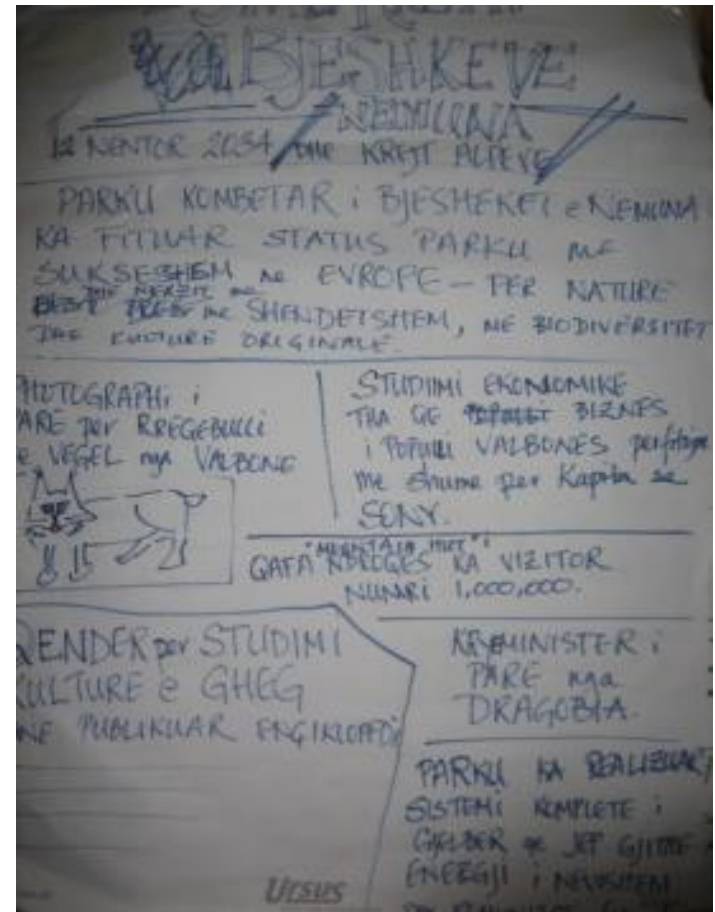 BJESHKEVE
NEMUNA
12 NENTOR 2034 DHE KREJT ALPEVE
PARKU KOMBETAR i BJESHKEET e NEMUNA
KA FITUAR STATUS PARKU ME
SUKSESSHEM NE EVROPE – PER NATURE
ME SHENDETSHEM, NE BIODIVERSITET
DHE KULTURE ORIGINALE.
PHOTOGRAPHi i
PARE per RREGEBULLI
e VEGEL nga VALBONE
STUDIMI EKONOMIKE
THA QE BIZNES
i POPULLI VALBONES perfitojne
me shume per Kapita se
SONY.
"MOUNTAIN HUT" i
QAFA NDROQES KA VIZITOR
NUMARi 1,000,000.
QENDER per STUDIMI
KULTURE e GHEG
KANE PUBLIKUAR ENCIKLOPEDI
KRYEMINISTER i
PARE nga
DRAGOBIA.
PARKU KA REALIZUAR
SISTEMI KOMPLETE i
GJELBER QE JEP GJITHE
ENERGJI i NEVOJSHEM
Ursus